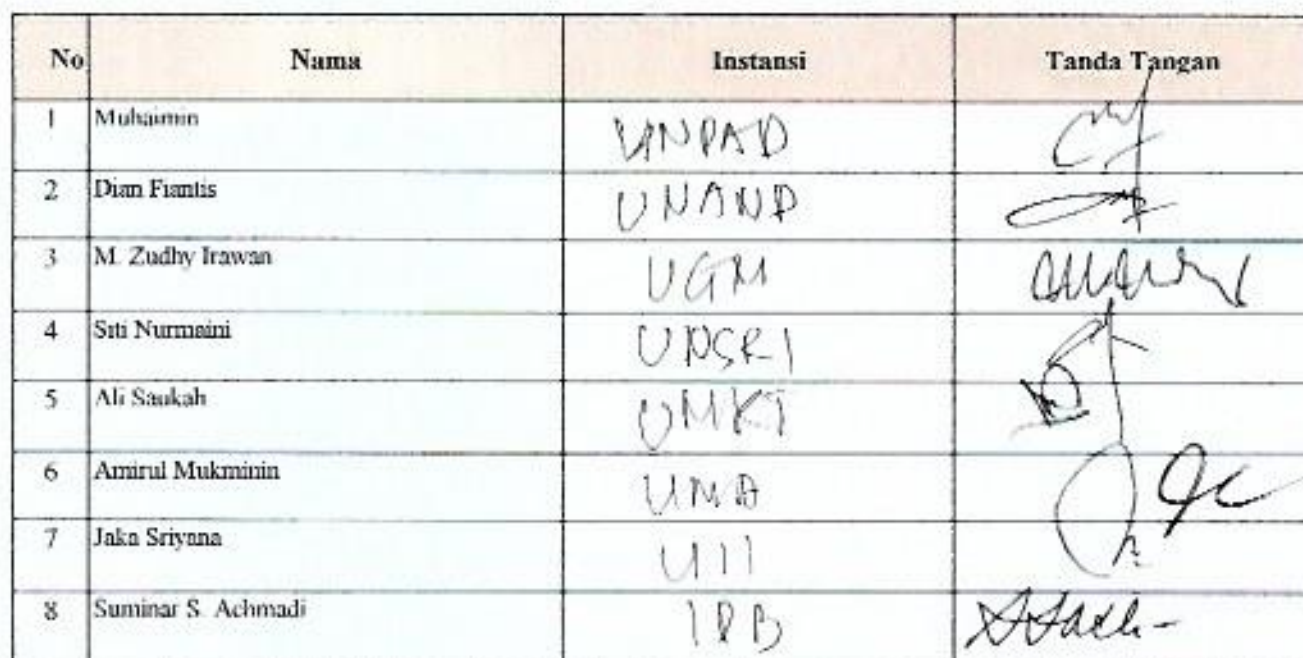 No Nama Instansi Tanda Tangan
1 Muhaimin UNPAD
2 Dian Fiantis UNAND
3 M. Zudhy Irawan UGM
4 Siti Nurmaini UNSRI
5 Ali Saukah UMKT
6 Amirul Mukminin
7 Jaka Sriyana UII
8 Suminar S. Achmadi IPB